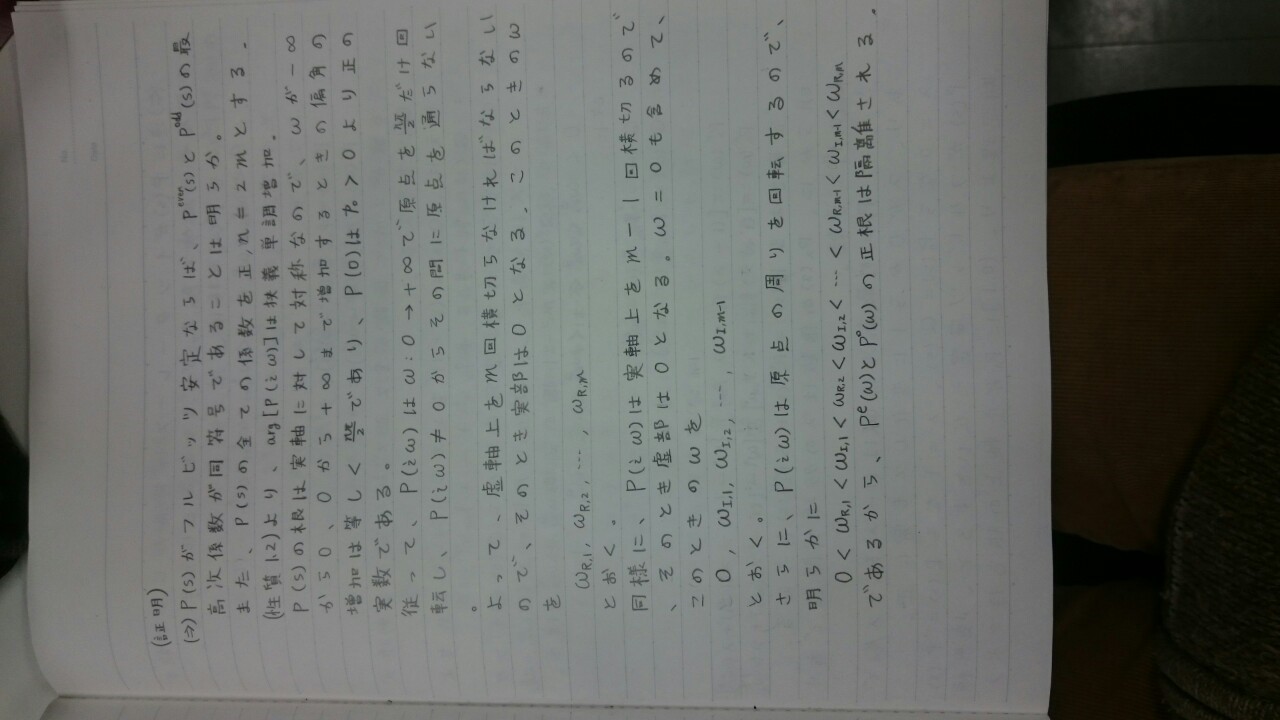 (証明)
(⇒) P(s)がフルビッツ安定ならば、P^even(s)とP^odd(s)の最
高次係数が同符号であることは明らか。
また、P(s)の全ての係数を正,n=2mとする.
(性質1.2)より、arg[P(iω)]は狭義単調増加.
P(s)の根は実軸に対して対称なので、ωが-∞
から0、0から+∞まで増加するときの偏角の
増加は等しく nπ/2 であり、P(0)はp₀>0より正の
実数である。
従って、P(iω)はω:0→+∞で原点を nπ/2 だけ回
転し、P(iω)≠0からその間に原点を通らない
。
よって、虚軸上をm回横切らなければならない
ので、そのとき実部は0となる.このときのω
を
ω_R,1, ω_R,2, …, ω_R,m
とおく。
同様に、P(iω)は実軸上をm-1回横切るので
、そのとき虚部は0となる。ω=0も含めて、
このときのωを
0, ω_I,1, ω_I,2, …, ω_I,m-1
とおく。
さらに、P(iω)は原点の周りを回転するので、
明らかに
0<ω_R,1<ω_I,1<ω_R,2<ω_I,2<…<ω_R,m-1<ω_I,m-1<ω_R,m
であるから、P^e(ω)とP^o(ω)の正根は隔離される.